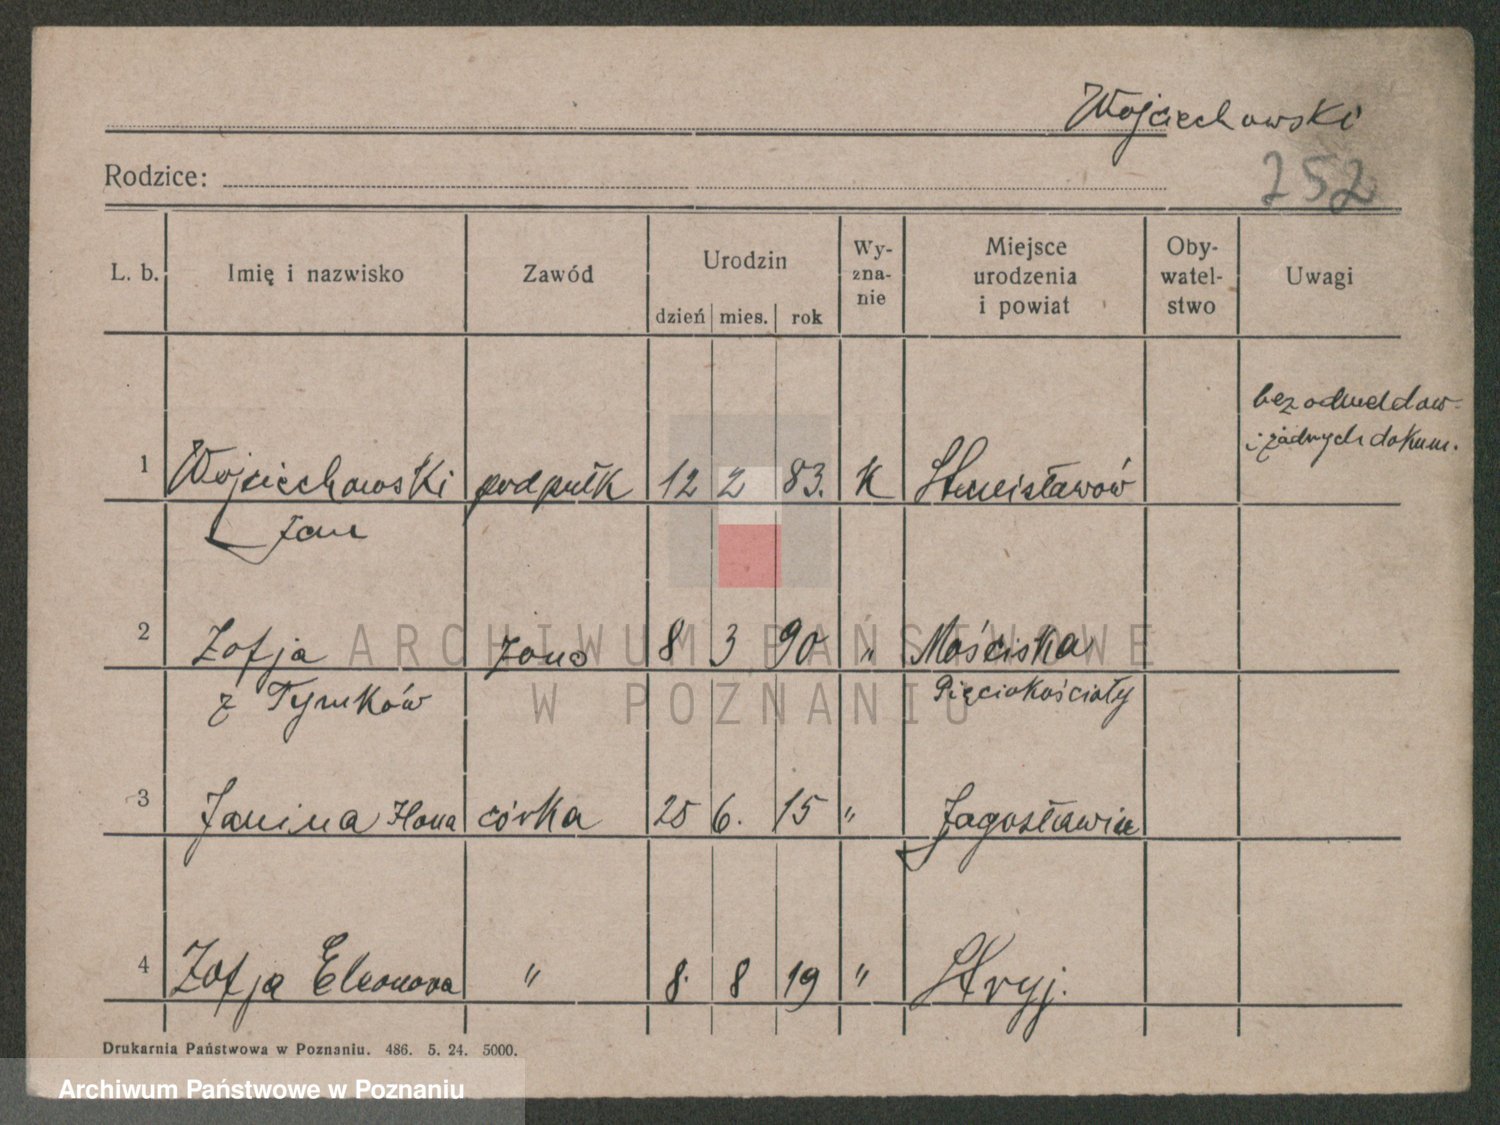 Wojciechowski
Rodzice:
252
L. b. Imię i nazwisko Zawód Urodzin dzień mies. rok Wy-zna-nie Miejsce urodzenia i powiat Oby-watel-stwo Uwagi
bez odmeldow-
i żadnych dokum.
1 Wojciechowski podpułk 12 2 83. K Stanisławów
Jan
2 Zofja żona 8 3 90 " Mościska
z Tymków Pięciokościoły
3 Janina Ilona córka 25 6. 15 "
4 Zofja Eleonora " 8. 8 19 " Stryj.
Drukarnia Państwowa w Poznaniu. 486. 5. 24. 5000.
ARCHIWUM PAŃSTWOWE
W POZNANIU
Archiwum Państwowe w Poznaniu